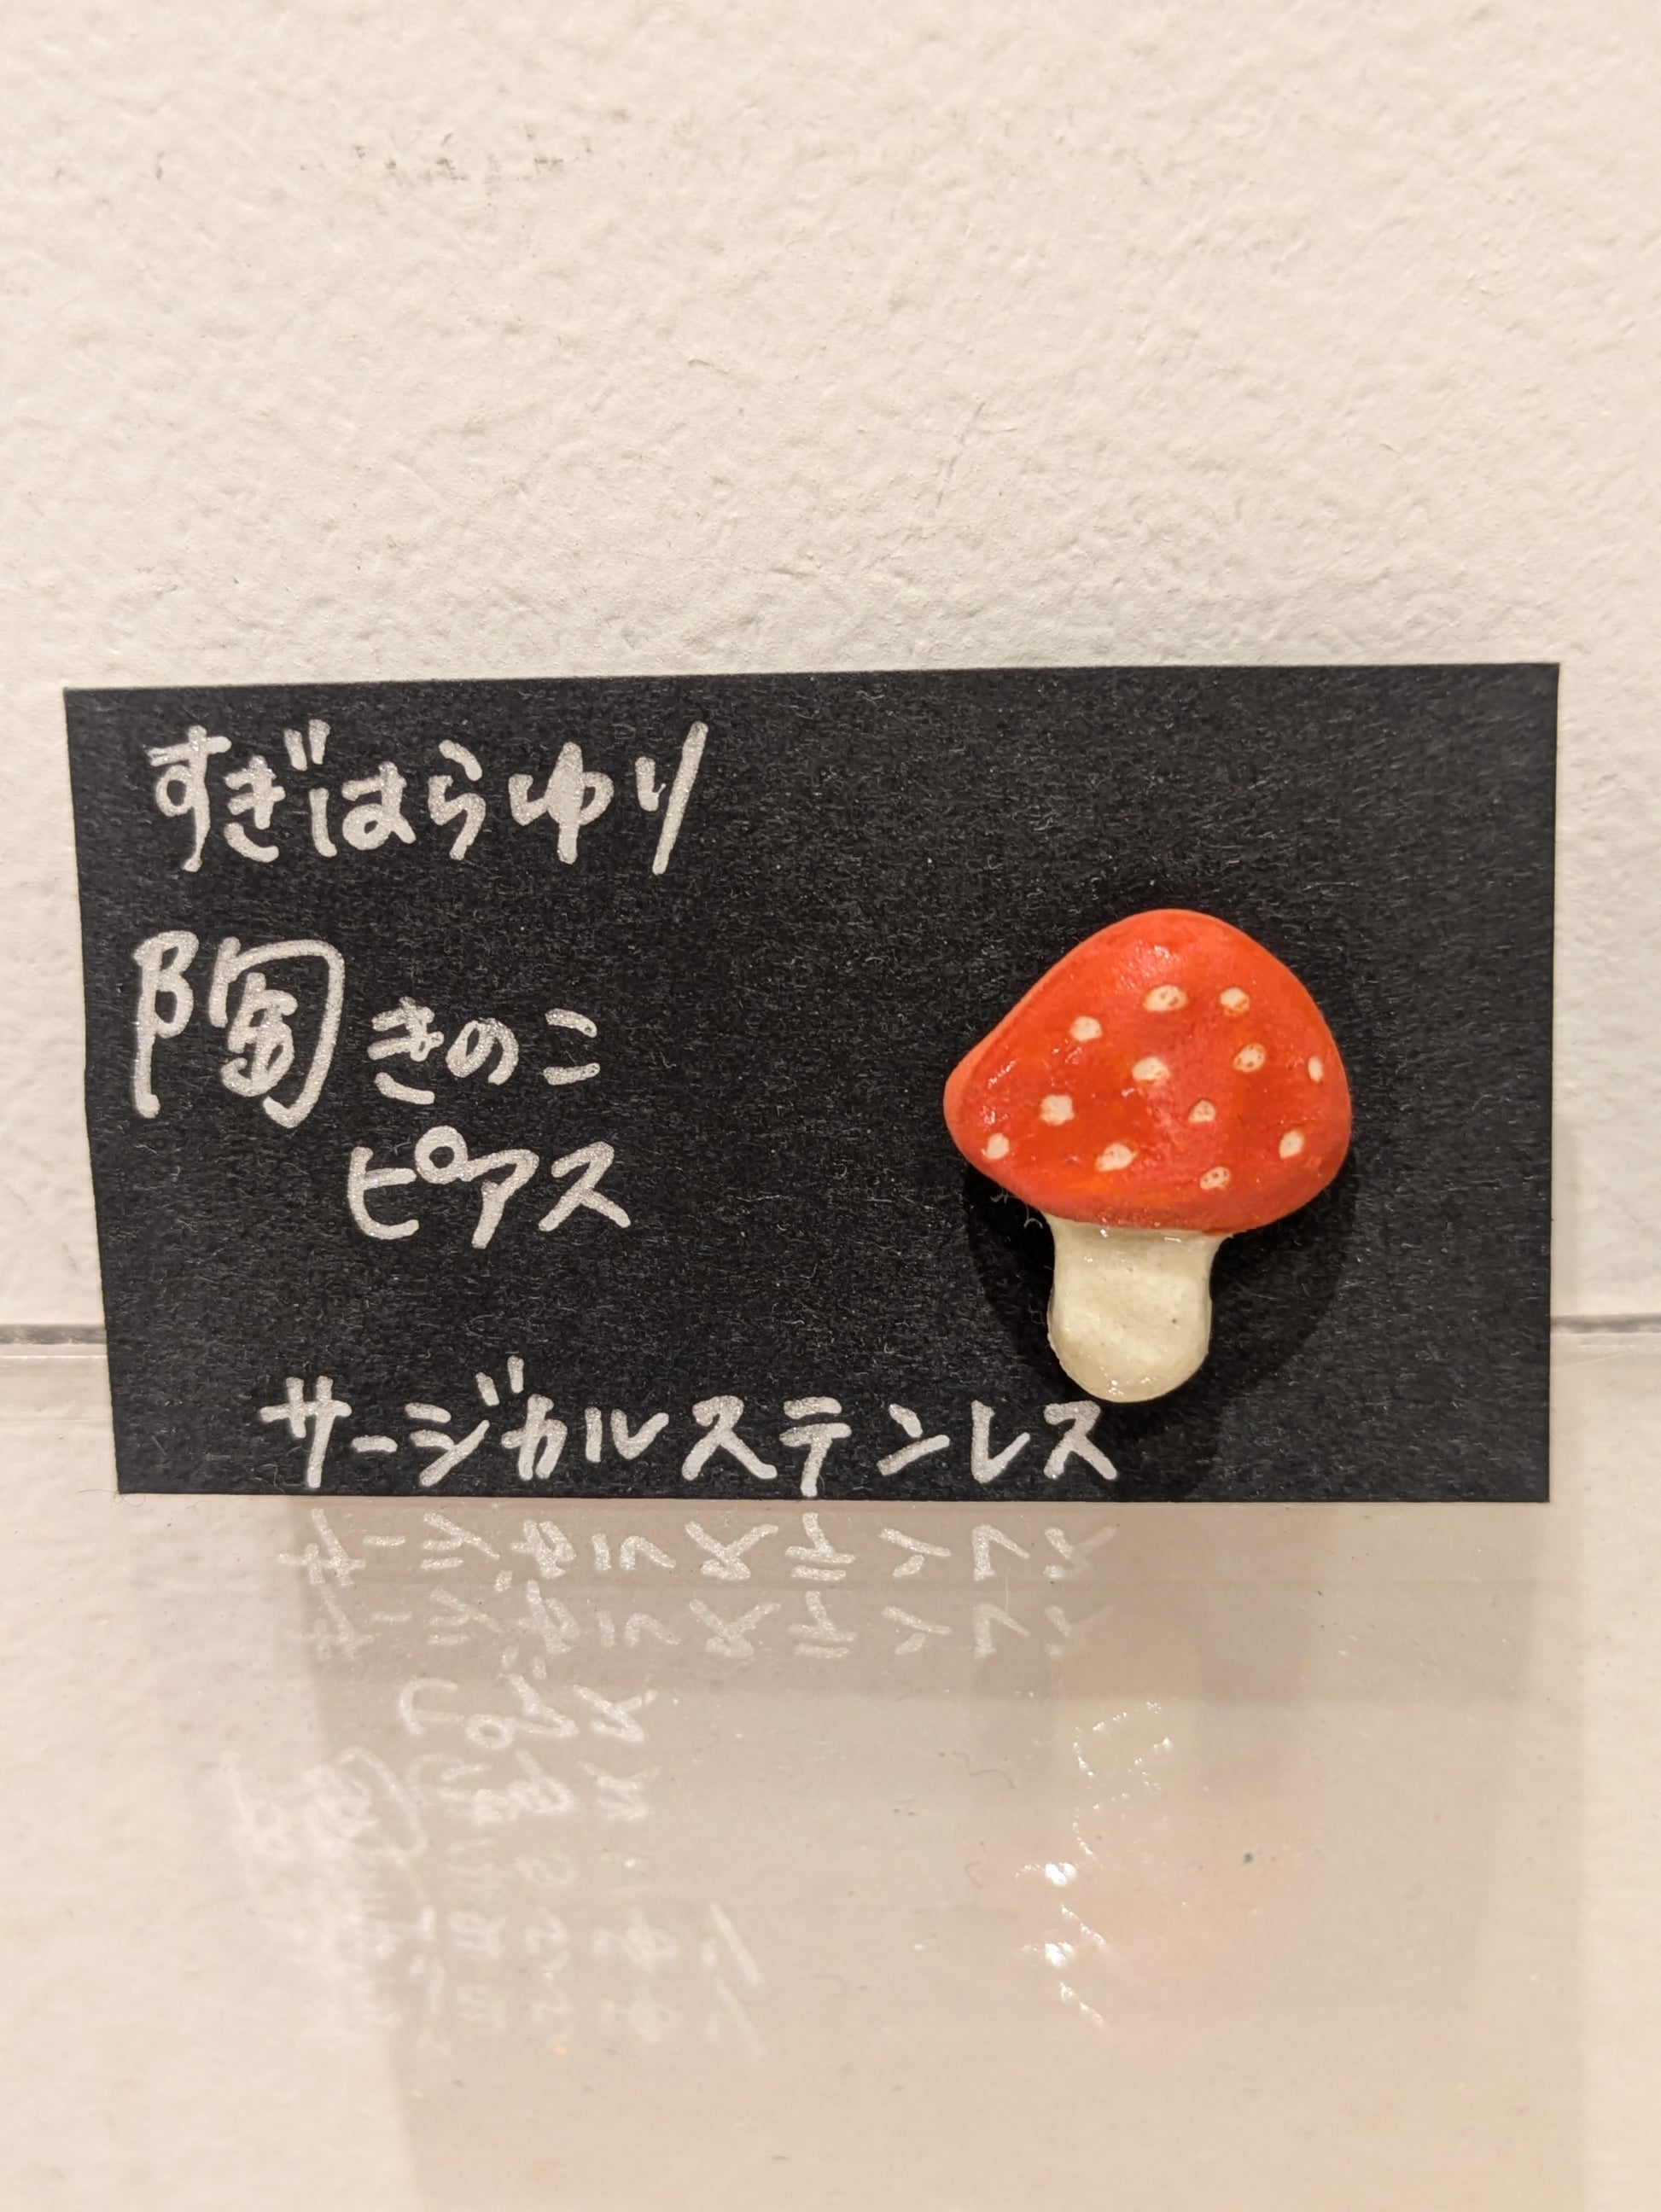 すぎはらゆり
陶きのこ
ピアス
サージカルステンレス